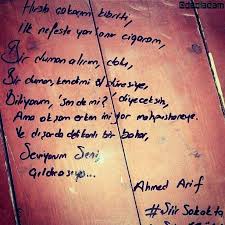 @dezladam
Hırsla çakarım kibriti,
İlk nefeste yarılanır cigaram,
Bir duman alırım, dolu,
Bir duman, kendimi öldüresiye,
Biliyorum, 'sen de mi?' diyeceksin,
Ama akşam erken iniyor mahpushaneye.
Ve dışarda delikanlı bir bahar,
Seviyorum Seni,
Çıldırasıya...
Ahmed Arif
#Şiir Sokakta